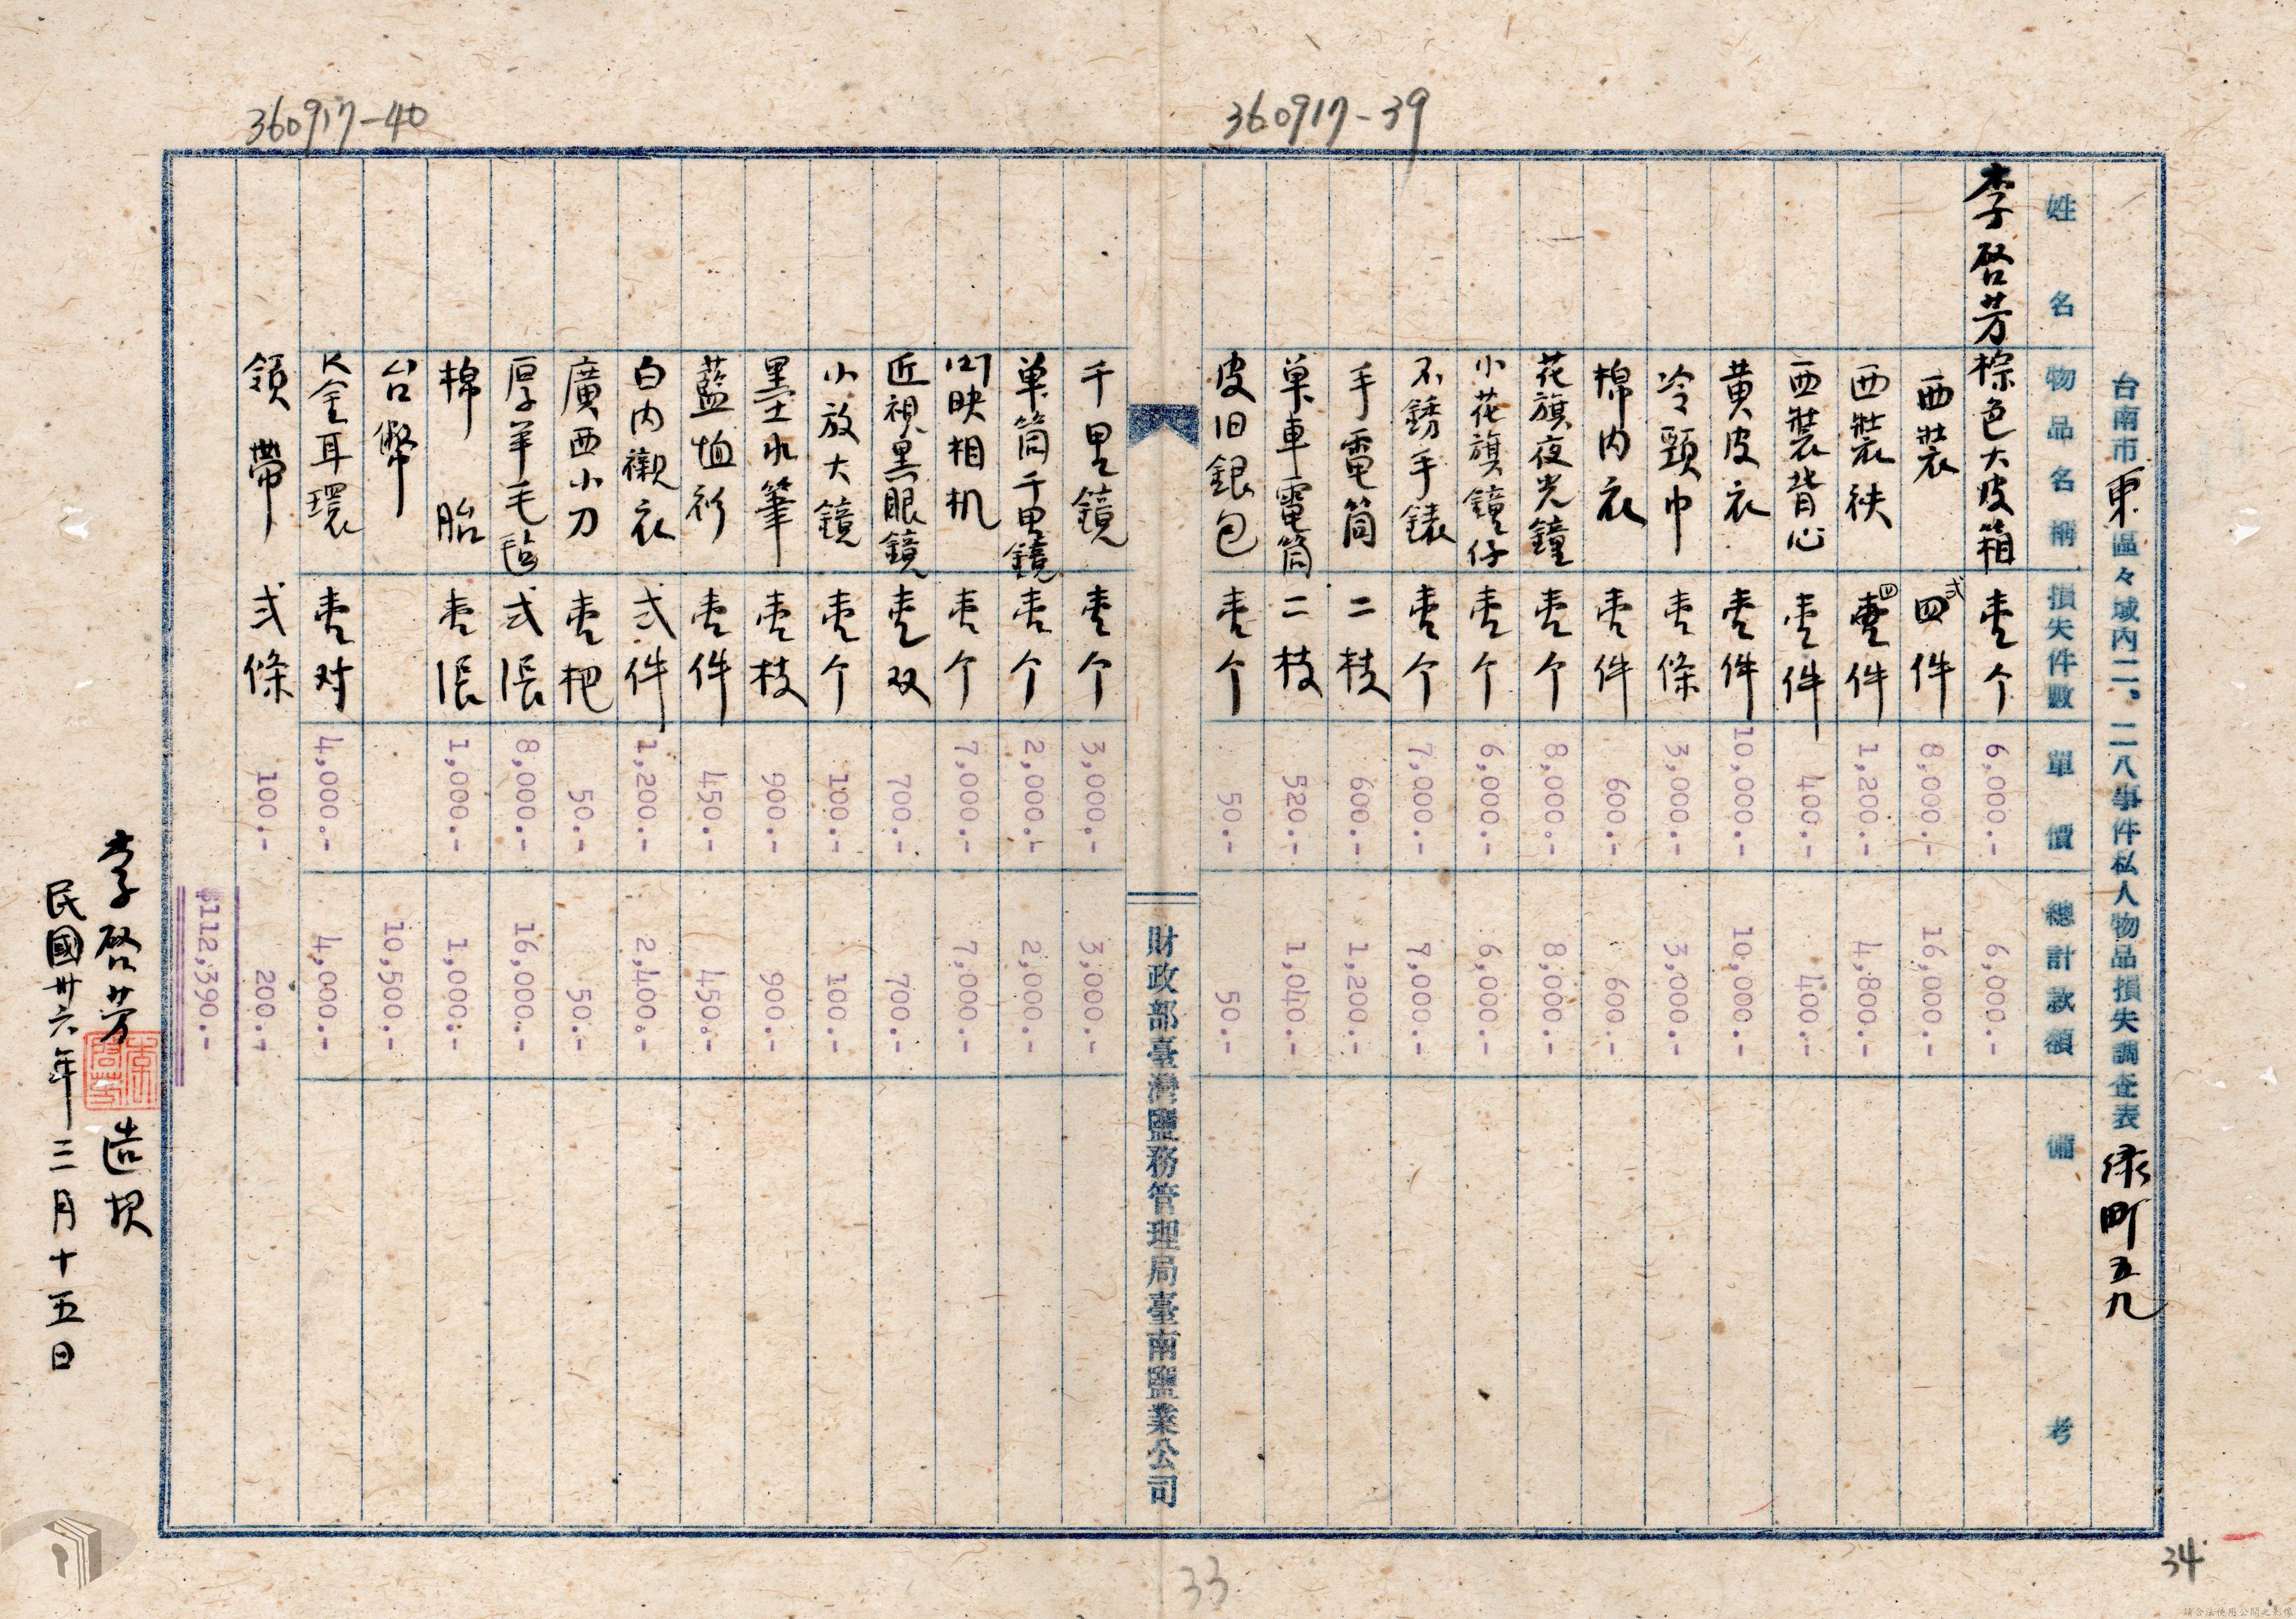 360917-39
360917-40
台南市東區々域內二、二八事件私人物品損失調查表 綠町五九
姓名 物品名稱 損失件數 單價 總計款額 備考
李啓芳 棕色大皮箱 壹个 6,000.- 6,000.-
西裝 四弍件 8,000.- 16,000.-
西裝袂 壹四件 1,200.- 4,800.-
西裝背心 壹件 400.- 400.-
黄皮衣 壹件 10,000.- 10,000.-
冷頸巾 壹條 3,000.- 3,000.-
棉内衣 壹件 600.- 600.-
花旗夜光鐘 壹个 8,000.- 8,000.-
小花旗鐘仔 壹个 6,000.- 6,000.-
不銹手錶 壹个 7,000.- 7,000.-
手電筒 二枝 600.- 1,200.-
單車電筒 二枝 520.- 1,040.-
皮旧銀包 壹个 50.- 50.-
財政部臺灣鹽務管理局臺南鹽業公司
千里鏡 壹个 3,000.- 3,000.-
單筒千里鏡 壹个 2,000.- 2,000.-
映相机 壹个 7,000.- 7,000.-
近視黑眼鏡 壹双 700.- 700.-
小放大鏡 壹个 100.- 100.-
墨水筆 壹枝 900.- 900.-
藍恤衫 壹件 450.- 450.-
白内襯衣 弍件 1,200.- 2,400.-
廣西小刀 壹把 50.- 50.-
厚羊毛毡 弍張 8,000.- 16,000.-
棉胎 壹張 1,000.- 1,000.-
台幣 10,500.-
K金耳環 壹对 4,000.- 4,000.-
領帶 弍條 100.- 200.-
$112,390.-
李啓芳 造報
李啓芳
民國卅六年三月十五日
33
34